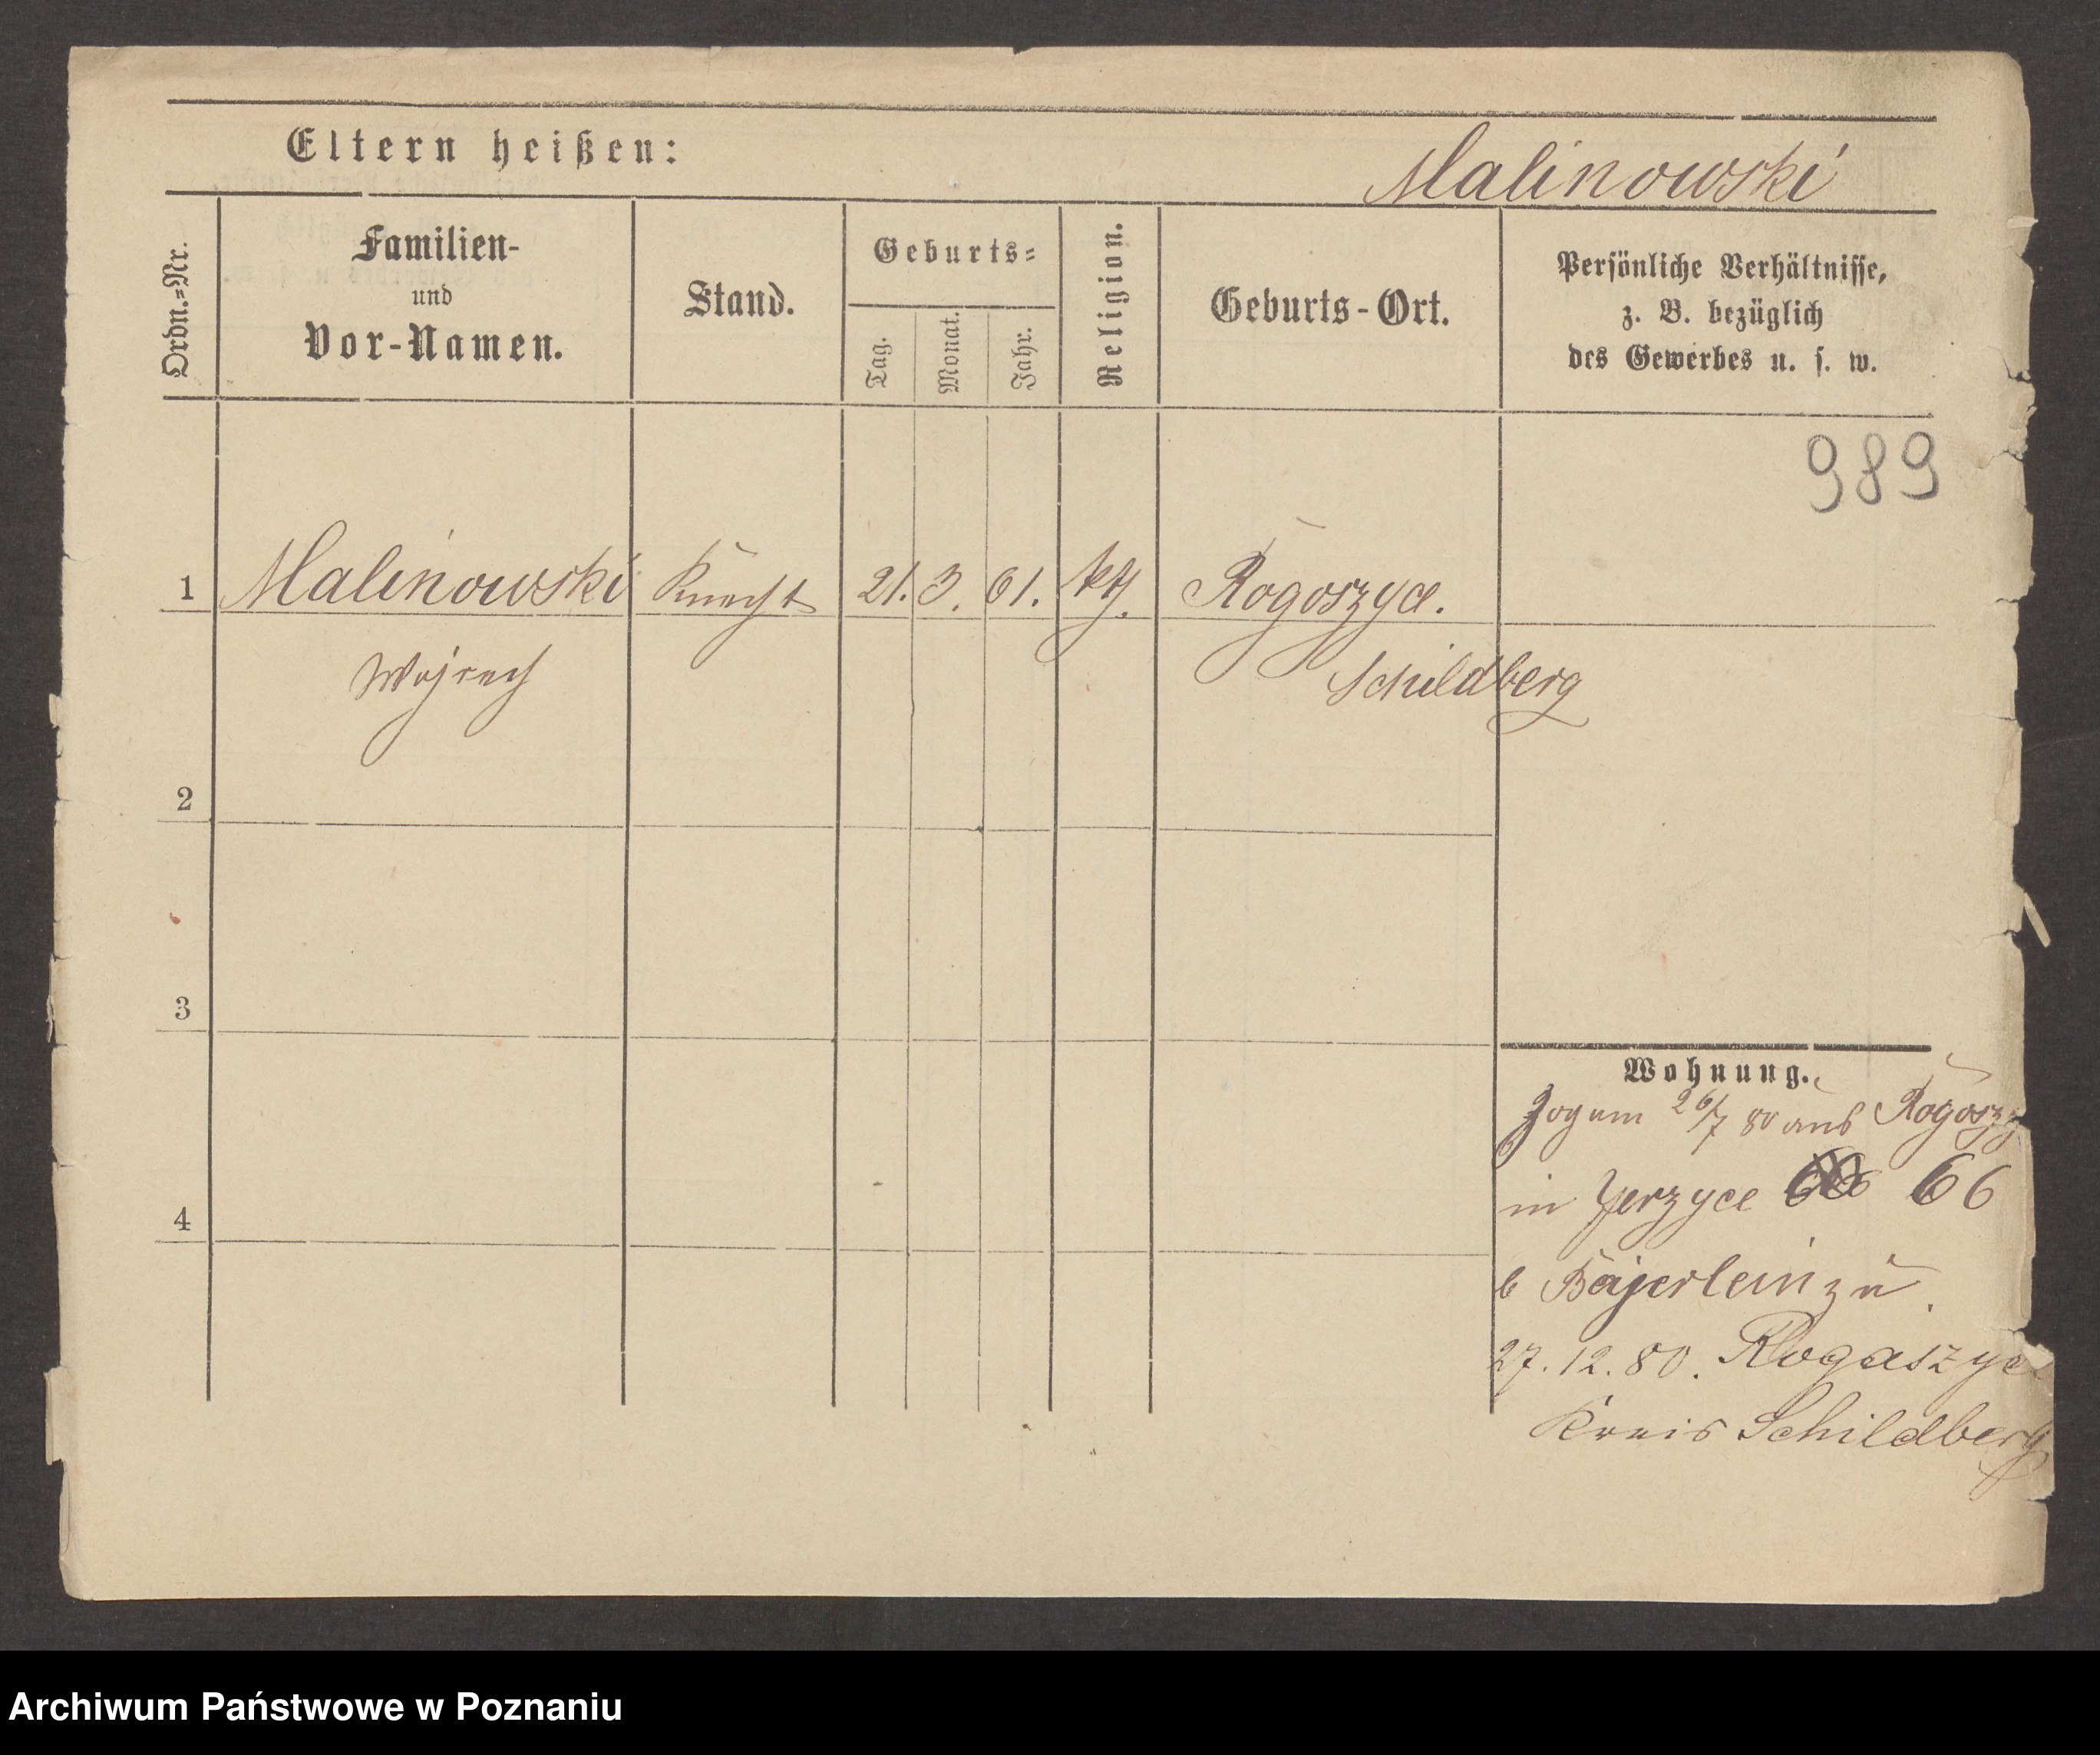 Eltern heißen:
Malinowski
Ordn.=Nr.
Familien-
und
Vor-Namen.
Stand.
Geburts=
Tag.
Monat.
Jahr.
Religion.
Geburts-Ort.
Persönliche Verhältnisse,
z. B. bezüglich
des Gewerbes u. s. w.
989
1 Malinowski Knecht 21. 3. 61. kth. Rogoszyce.
Wojcech Schildberg
2
3
4
Wohnung.
Zog am 26/7 80 aus Rogoszy
in Jerzyce 66
b Bajerlein zu
27. 12. 80. Rogaszyce
Kreis Schildberg
Archiwum Państwowe w Poznaniu